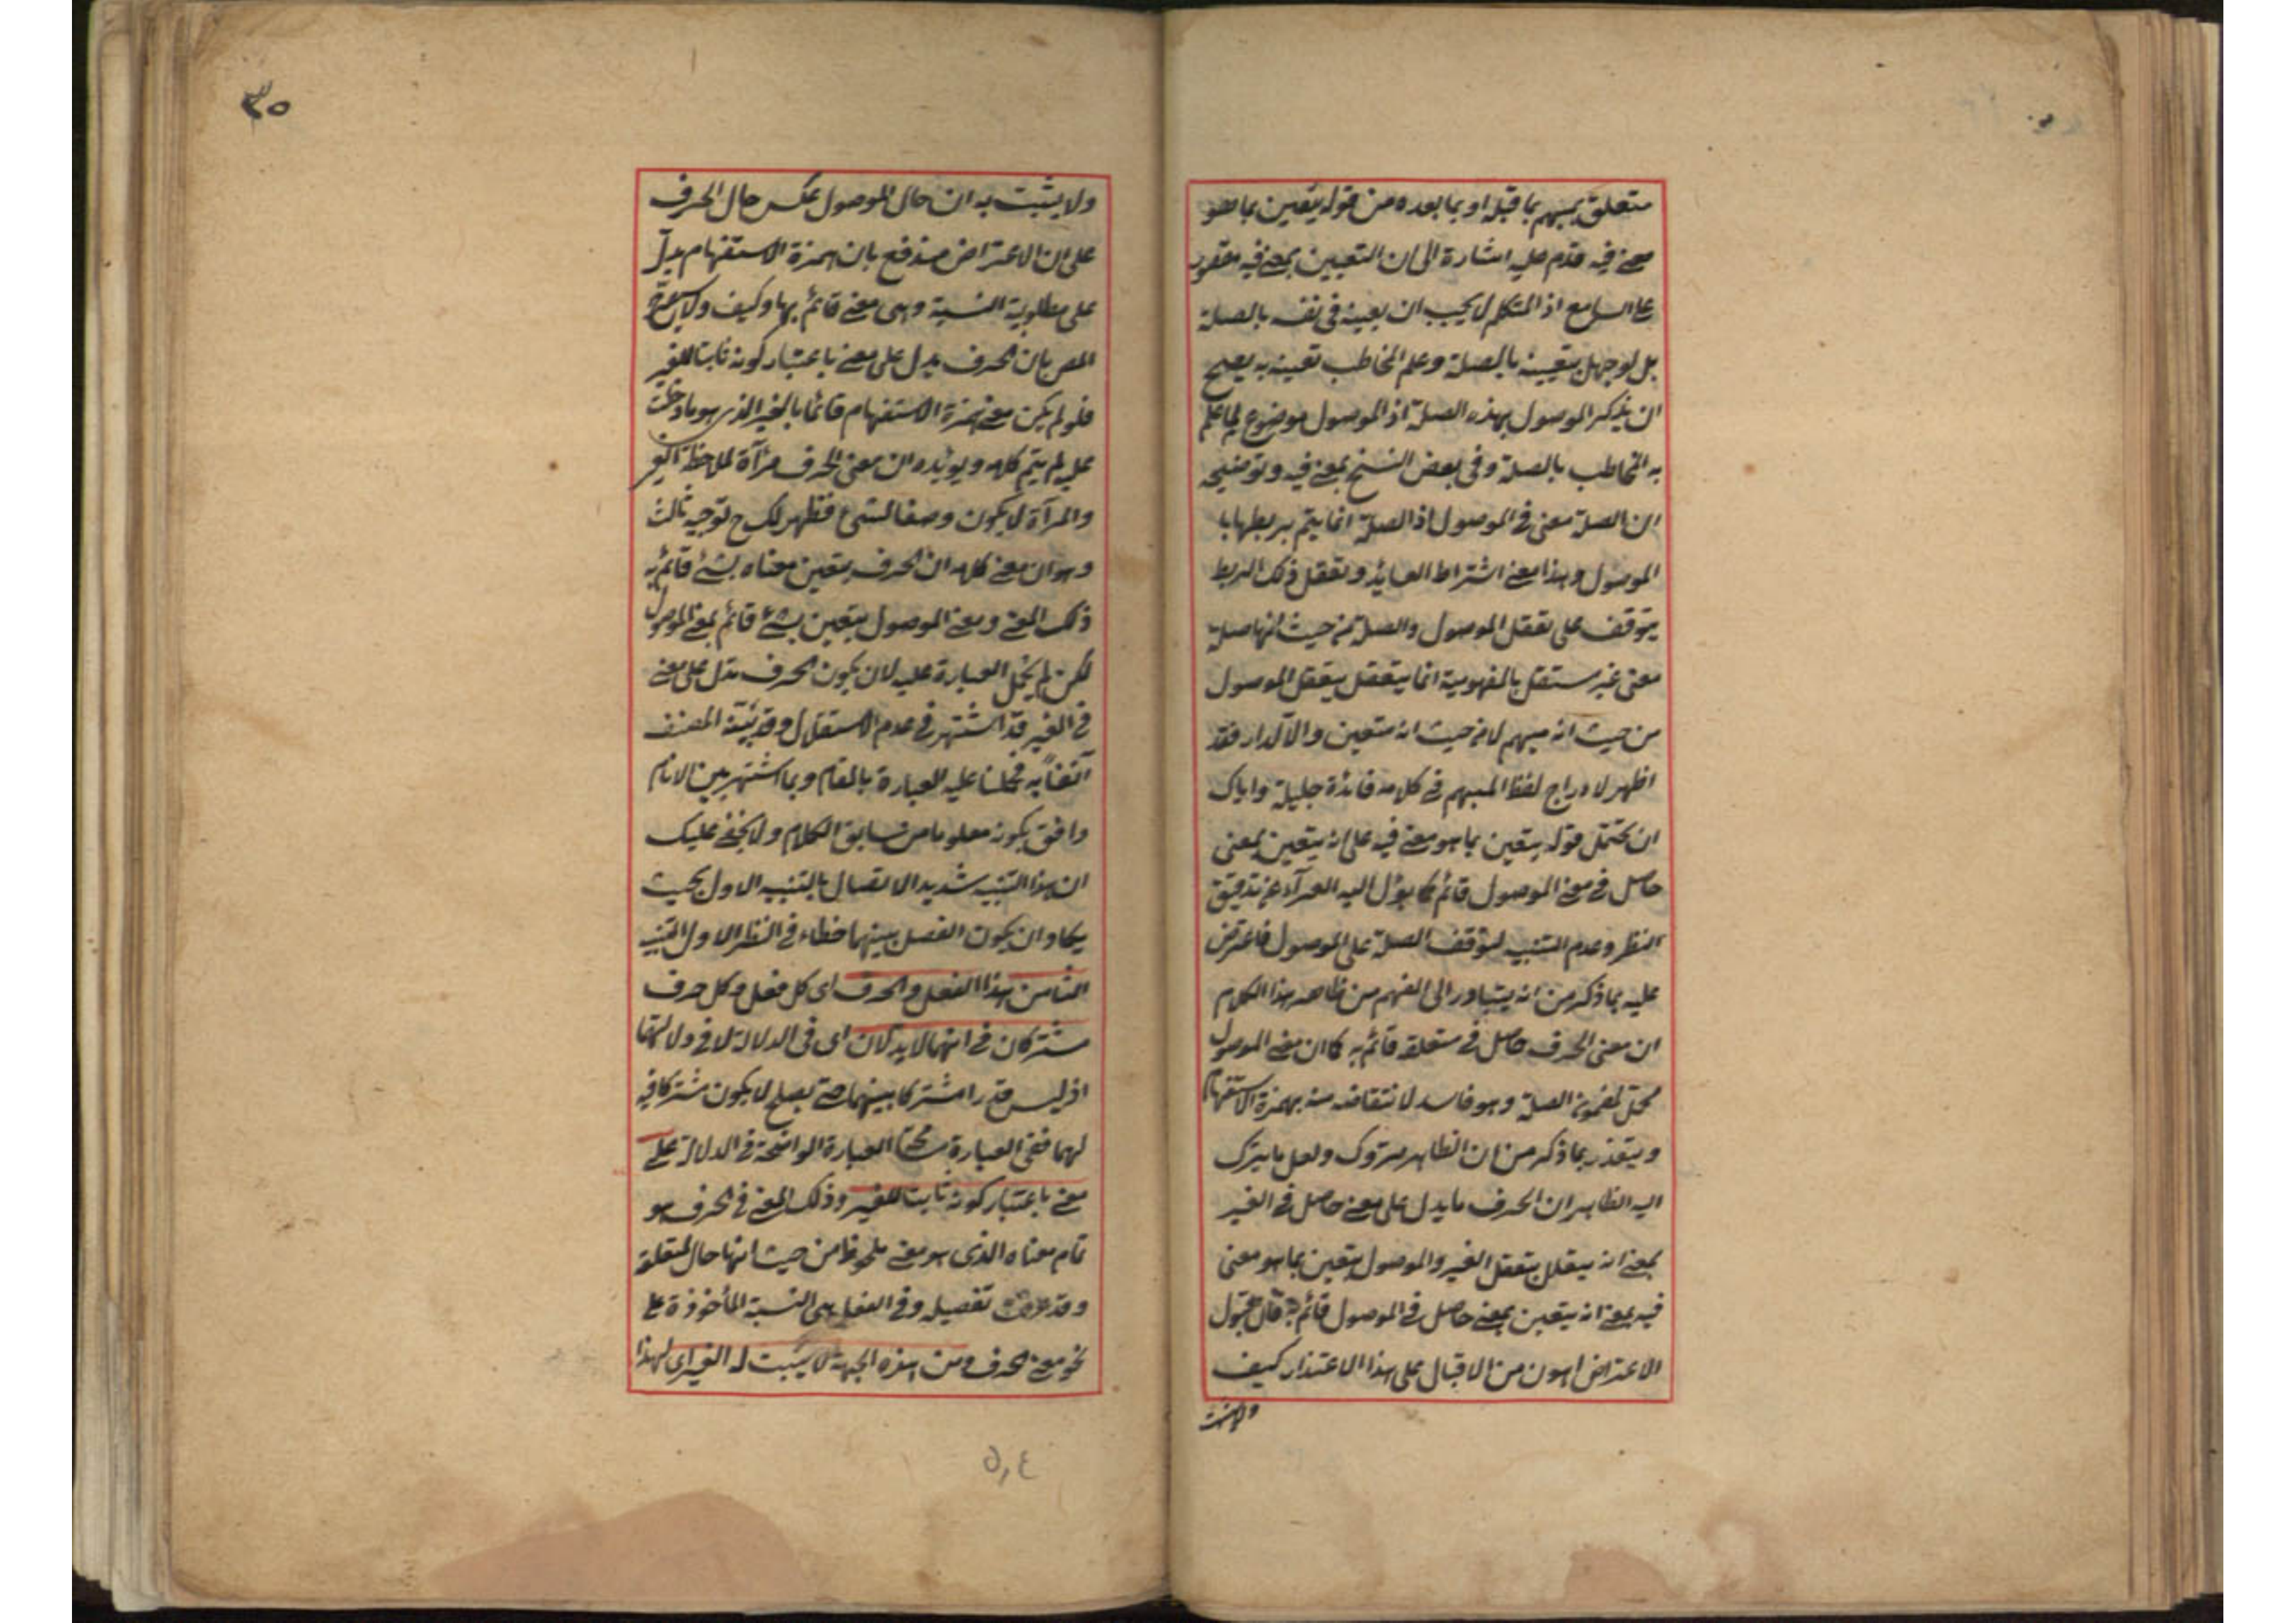 متعلق بمبهم بما قبله او بما بعده من قوله يتعين بما هو
معنى فيه قدم عليه اشارة الى ان التعيين بمعنى فيه مقصور
على السامع اذ المتكلم لا يجب ان يعينه فى نفسه بالصلة
بل لو جهل بتعيينه بالصلة وعلم المخاطب تعينه به يصح
ان يذكر الموصول بهذه الصلة اذ الموصول موضوع لما علم
به المخاطب بالصلة وفى بعض النسخ بمعنى فيه وتوضيحه
ان الصلة معنى فى الموصول اذ الصلة انما يتم بربطها با
الموصول وهذا معنى اشتراط العايد وتعقل ذلك الربط
يتوقف على تعقل الموصول والصلة من حيث انها صلة
معنى غير مستقل بالمفهومية انما يتعقل بتعقل الموصول
من حيث انه مبهم لا من حيث انه متعين والا لدار فقد
اظهر لادراج لفظ المبهم فى كلامه فائدة جليلة واياك
ان تحتمل قوله يتعين بما هو معنى فيه على انه يتعين بمعنى
حاصل فى معنى الموصول قائم كما يؤل اليه العرآء عن تدقيق
النظر وعدم التنبيه لتوقف الصلة على الموصول فاعترض
عليه بما ذكر من انه يتبادر الى الفهم من ظاهر هذا الكلام
ان معنى الحرف حاصل فى متعلقه قائم به كما ان معنى الموصول
محل لمضمون الصلة وهو فاسد لانتقاضه منه بهمزة الاستفهام
ويتعذر بما ذكر من ان الظاهر متروك ولعل ما يترك
اليه الظاهر ان الحرف ما يدل على معنى حاصل فى الغير
بمعنى انه يتعقل بتعقل الغير والموصول يتعين بما هو معنى
فيه بمعنى انه يتعين بمعنى حاصل فى الموصول قائم به فان قبول
الاعتراض اهون من الاقبال على هذا الاعتذار كيف
ولا يثبت
٣٥
ولا يثبت به ان حال الموصول عكس حال الحرف
على ان الاعتراض مندفع بان همزة الاستفهام يدل
على مطلوبية النسبة وهى معنى قائم بها وكيف ولا
المص بان الحرف يدل على معنى باعتبار كونه ثابتا للغير
فلو لم يكن معنى همزة الاستفهام قائما بالغير الذى هو ما دخلت
عليه لم يتم كلامه ويؤيده ان معنى الحرف مرآة لملاحظة الغير
والمرآة لا يكون وصفا لشىء فظهر لك ح توجيه ثالث
وهو ان معنى كلامه ان الحرف يتعين معناه بشئ قائم به
ذلك المعنى ومعنى الموصول يتعين بشئ قائم بمعنى الموصول
لكن لم يحمل العبارة عليه لان يكون الحرف يدل على معنى
فى الغير قد اشتهر فى عدم الاستقلال وقد بينه المصنف
آنفا به فحملنا عليه العبارة بالمقام وبما اشتهر بين الانام
وافق بكونه معلوما من سابق الكلام ولا يخفى عليك
ان هذا التنبيه شديد الاتصال بالتنبيه الاول بحيث
يكاد ان يكون الفصل بينهما خطاء فى النظر الاول التنبيه
الثامن هذا الفعل والحرف اى كل فعل وكل حرف
مشتركان فى انهما لا يدلان اى فى الدلالة لا فى دلالتهما
اذ ليس قدرا مشتركا بينهما حتى يصلح لا يكون مشتركا فيه
لهما ففى العبارة العبارة الواضحة فى الدلالة على
معنى باعتبار كونه ثابت للغير وذلك المعنى فى الحرف هو
تمام معناه الذى هو معنى ملحوظا من حيث انها حال لمتعلقه
وقد عرفت تفصيله وفى الفعل هى النسبة المأخوذة على
نحو معنى الحرف ومن هذه الجهة لا يثبت له الغير اى لهذا
٥,٤